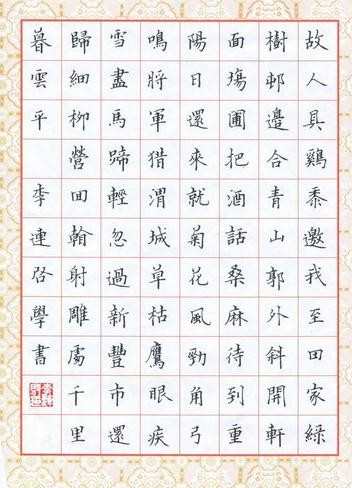 故人具雞黍邀我至田家綠
樹邨邊合青山郭外斜開軒
面塲圃把酒話桑麻待到重
陽日還來就菊花風勁角弓
鳴將軍猎渭城草枯鷹眼疾
雪盡馬蹄輕忽過新豐市還
歸細柳營回翰射雕處千里
暮雲平 李連启學書